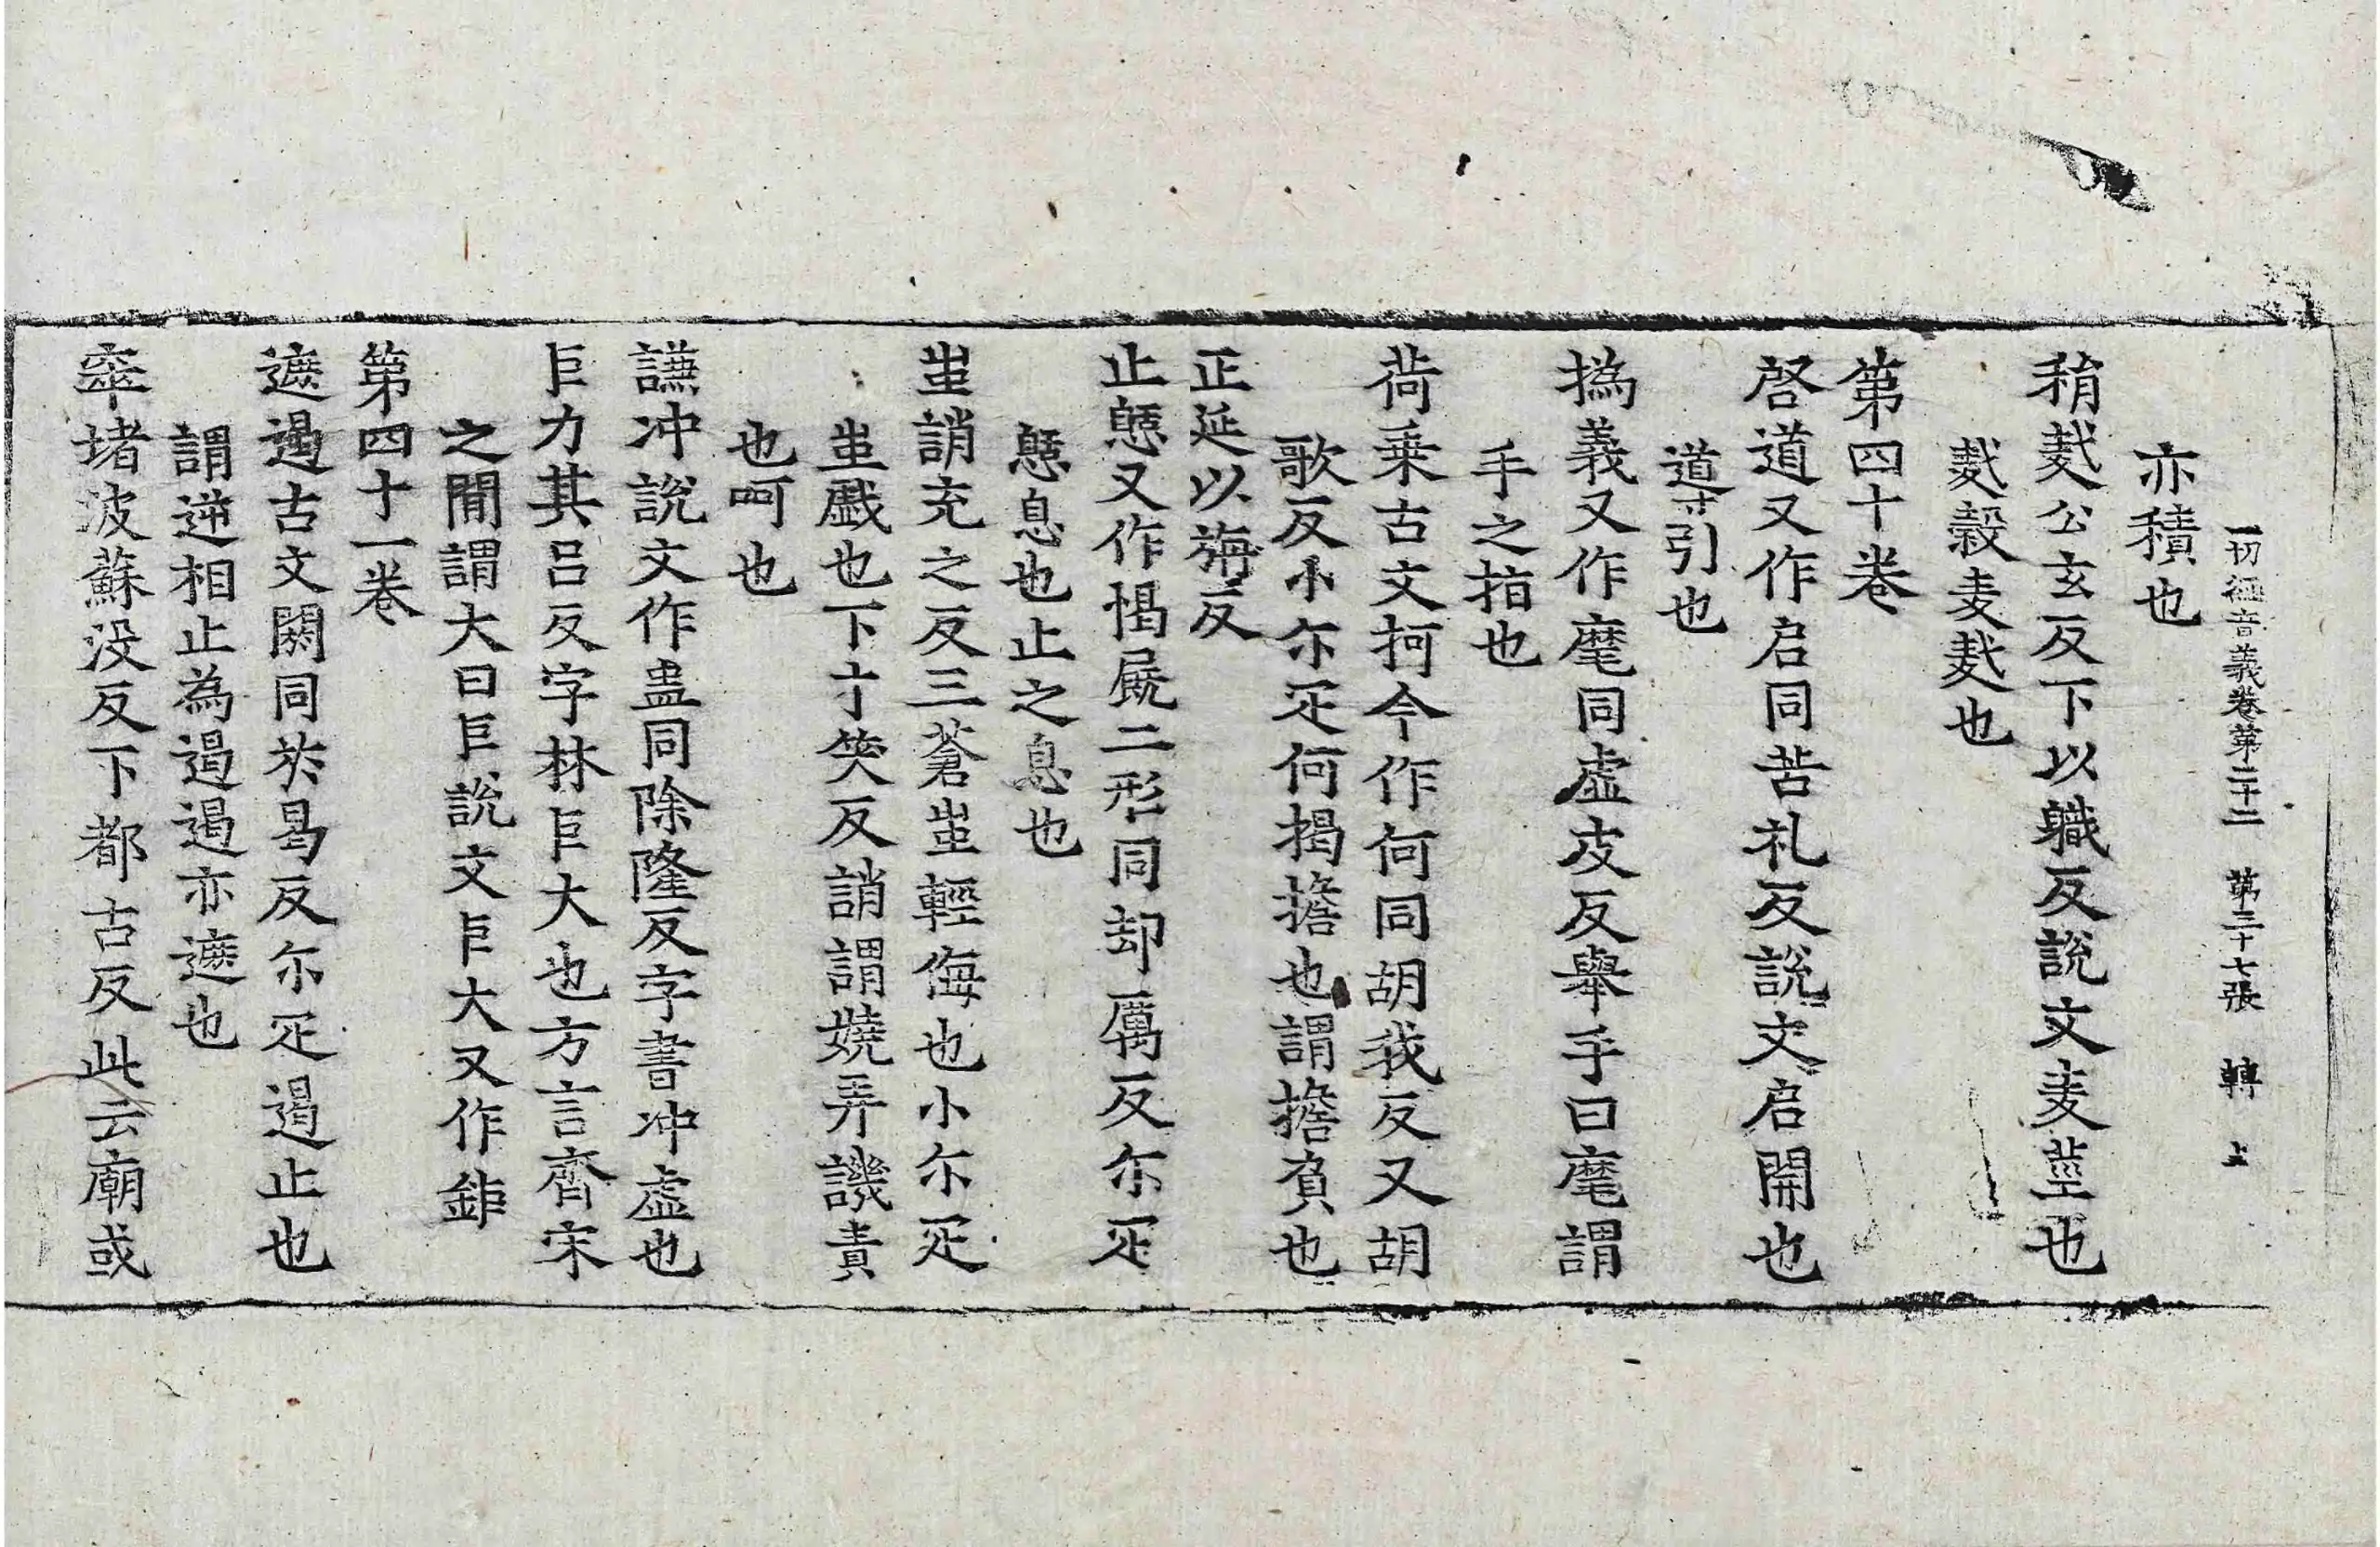 一切經音義卷第二十二 第三十七張 轉 上
亦積也
䅌麩公玄反下以職反說文麦莖也
麩糓麦麩也
第四十卷
啓道又作启同苦礼反說文启開也
道引也
撝義又作麾同虛皮反舉手曰麾謂
手之指也
荷乗古文抲今作何同胡我反又胡
歌反小尓疋何揭擔也謂擔負也
正延以旃反
止憩又作愒㞒二形同却厲反尓疋
憩息也止之息也
蚩誚充之反三蒼蚩輕侮也小尓疋
蚩戯也下才笑反誚謂嬈弄譏責
也呵也
謙冲說文作盅同除隆反字書冲虛也
巨力其呂反字林巨大也方言齊宋
之間謂大曰巨說文巨大又作鉅
第四十一卷
遮遏古文閼同於曷反尓疋遏止也
謂逆相止為遏遏亦遮也
窣堵波蘇没反下都古反此云廟或